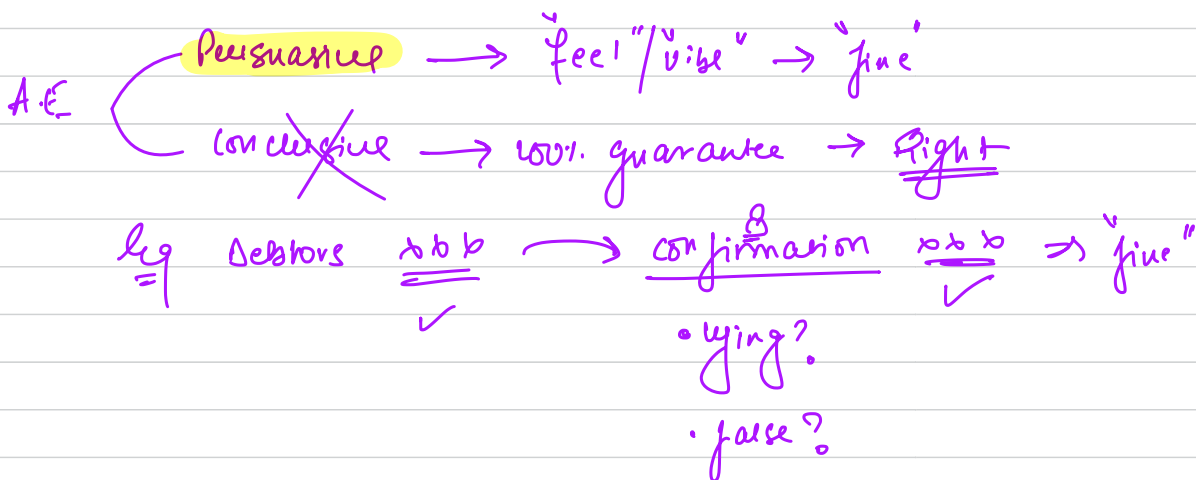 Persuasive → "feel"/"vibe" → "fine"
A.E
Conclusive → 100% guarantee → Right
eg Debtors xxx → confirmation xxx ⇒ "fine"
• lying?
• false?